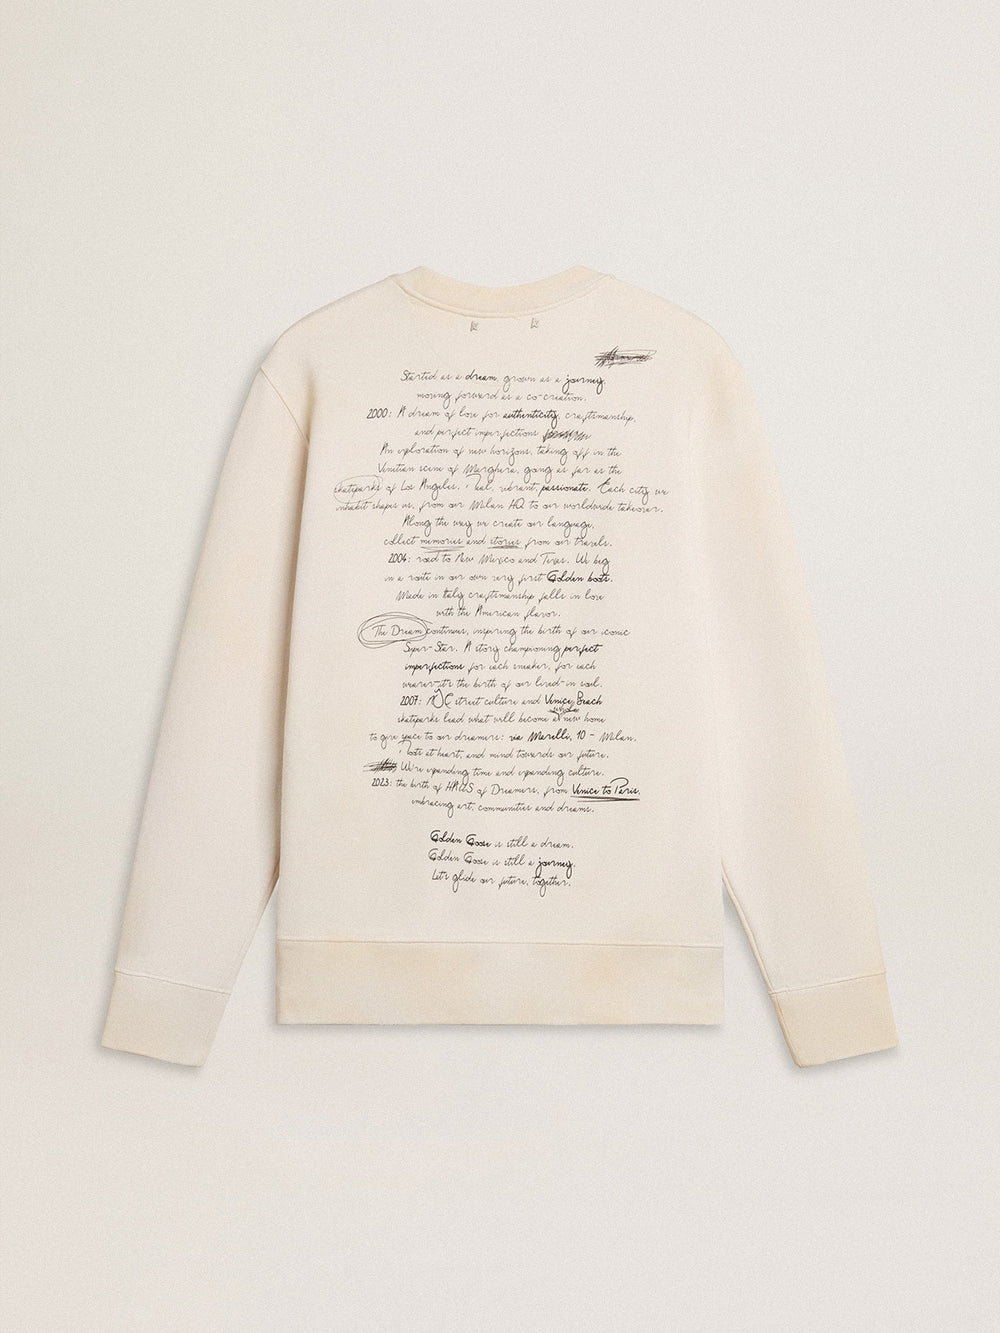 Started as a dream, grown as a journey,
moving forward as a co-creation.
2000: A dream of love for authenticity, craftsmanship,
and perfect imperfections
An exploration of new horizons, taking off in the
Venetian scene of Marghera, going as far as the
skateparks of Los Angeles. Real, vibrant, passionate. Each city we
inhabit shapes us, from our Milan HQ to our worldwide takeover.
Along the way we create our language,
collect memories and stories from our travels.
2004: road to New Mexico and Texas. We beg
in a route in our own very first Golden boots.
Made in Italy craftsmanship falls in love
with the American flavor.
The Dream continues, inspiring the birth of our iconic
Super-Star. A story championing perfect
imperfections for each sneaker, for each
wearer-it's the birth of our lived-in soul.
2007: NYC street culture and Venice Beach
skateparks lead what will become a whole new home
to give space to our dreamers: via Morelli, 10 - Milan.
roots at heart, and mind towards our future.
We're expanding time and expanding culture.
2023: the birth of HAUS of Dreamers, from Venice to Paris,
embracing art, communities and dreams.
Golden Goose is still a dream.
Golden Goose is still a journey.
Let's glide our future, together.